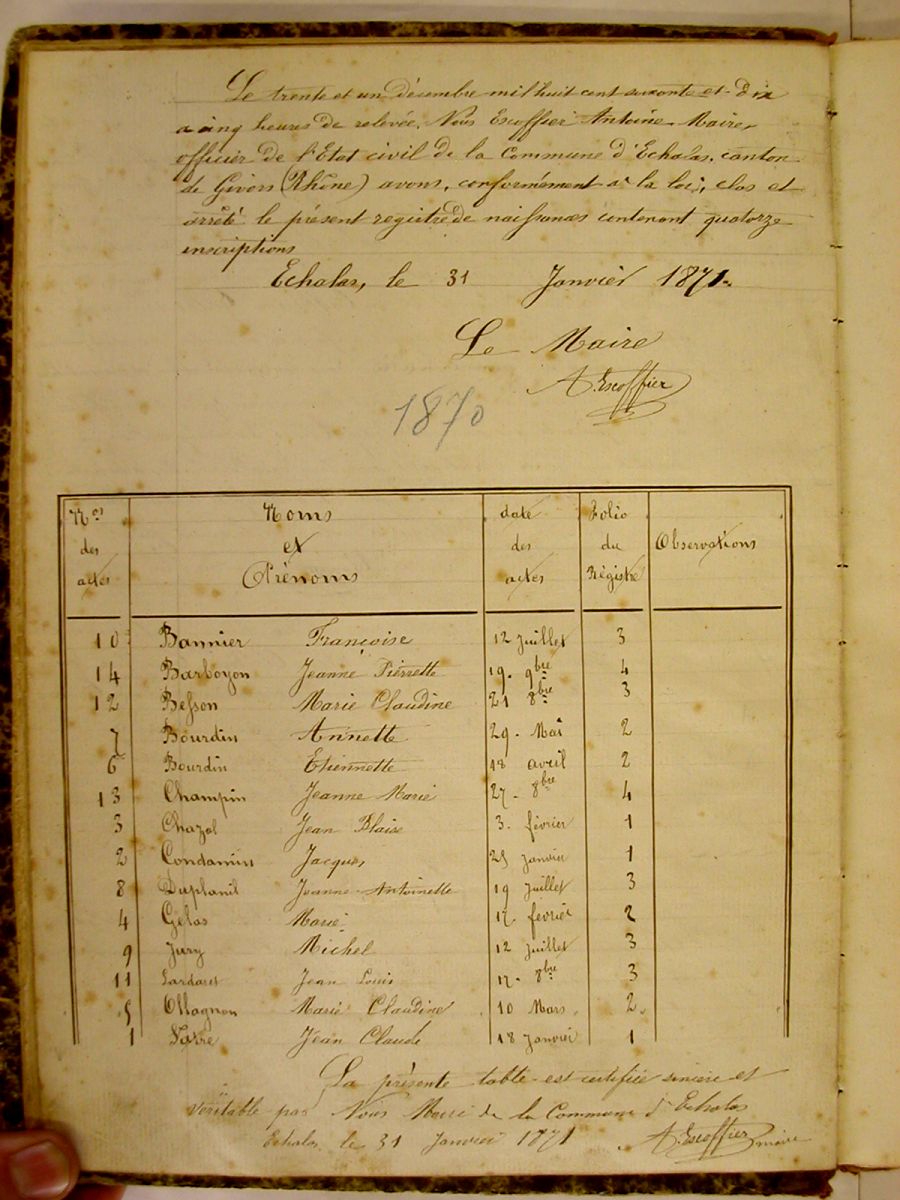 Le trente et un décembre mil huit cent soixante et dix
a cinq heures de relevée, Nous Escoffier Antoine Maire,
officier de l'Etat civil de la Commune d'Echalas, canton
de Givors (Rhône) avons, conformément à la loi, clos et
arrêté le présent registre de naissances contenant quatorze
inscriptions
Echalas, le 31 Janvier 1871.
Le Maire
A. Escoffier
1870
Nos des actes Noms et Prénoms date des actes Folio du Régistre Observations
10 Bannier Françoise 12 juillet 3
14 Barboyon Jeanne Pierrette 19. 9bre 4
12 Besson Marie Claudine 21 8bre 3
7 Bourdin Annette 29. Mai 2
6 Bourdin Etiennette 18 avril 2
13 Champin Jeanne Marie 27. 8bre 4
3 Chazal Jean Blaise 3. février 1
2 Condamin Jacques 25 janvier 1
8 Duplanil Jeanne Antoinette 19 juillet 3
4 Gelas Marie 17. février 2
9 Jury Michel 12 juillet 3
11 Jean Louis 17. 8bre 3
5 Ollagnon Marie Claudine 10 Mars. 2.
1 Jean Claude 18 janvier 1
La présente table est certifiée sincère et
véritable par Nous Maire de la Commune d'Echalas
Echalas, le 31 Janvier 1871 A. Escoffier maire